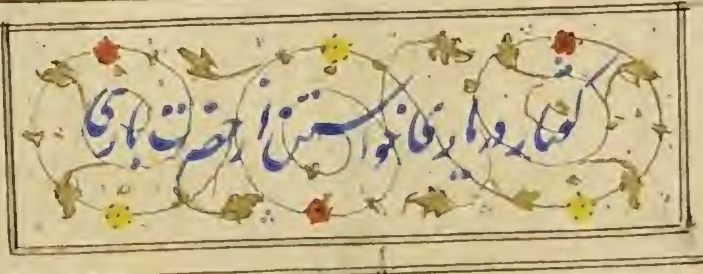 گفتار در یاری خواستن از حضرت باری